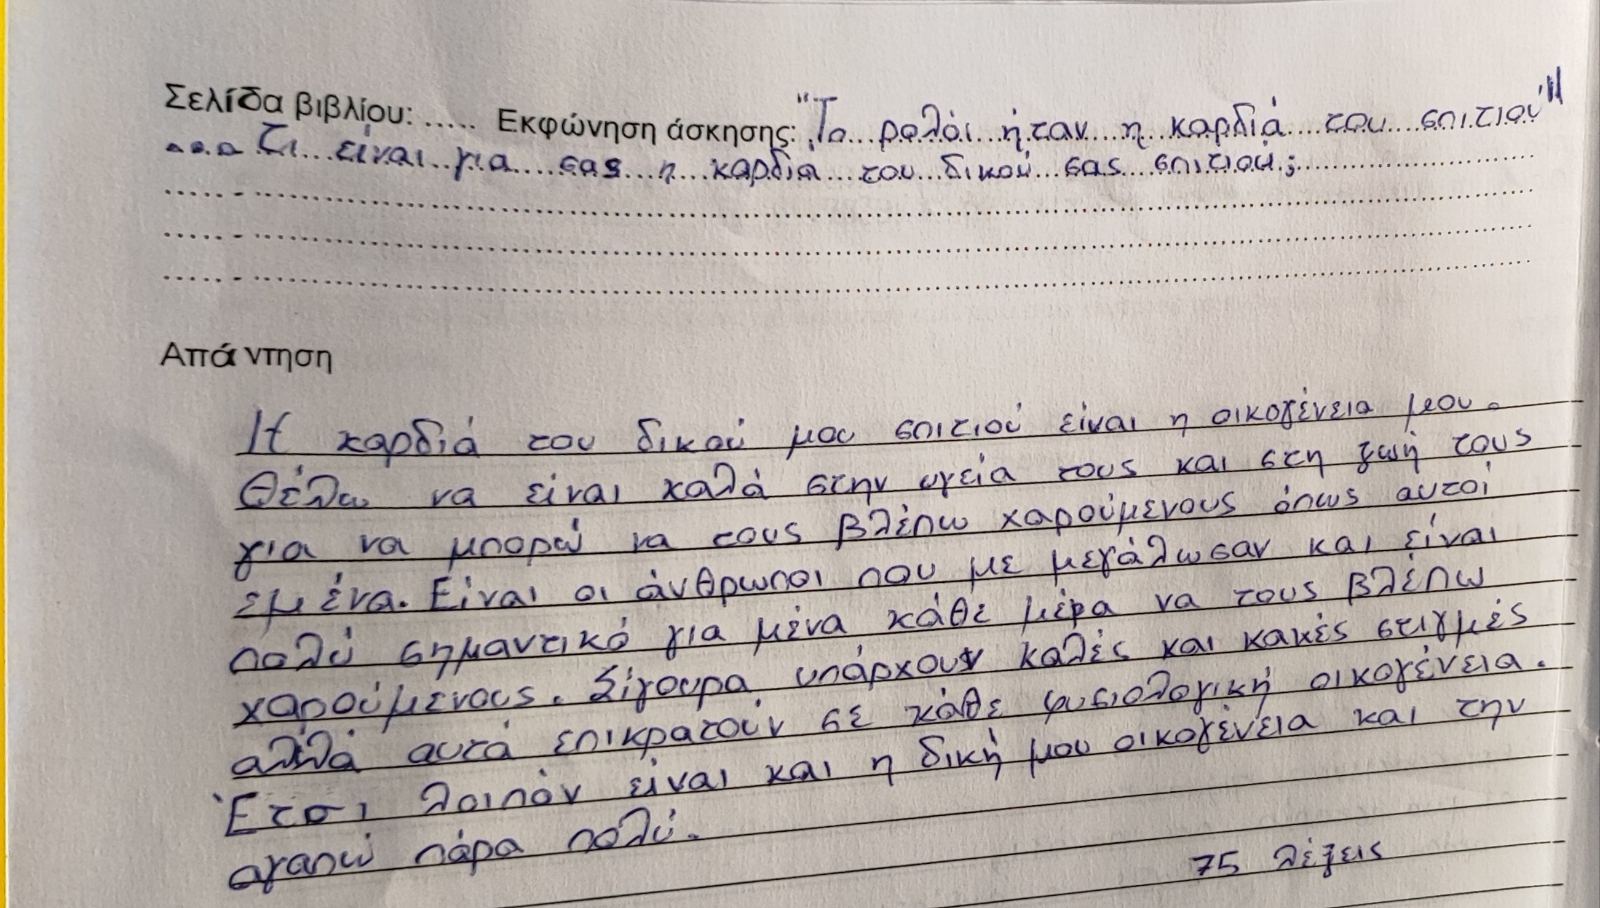 Σελίδα βιβλίου: ..... Εκφώνηση άσκησης: "Το ρολόι ήταν η καρδιά του σπιτιού"
... Τι είναι για σας η καρδιά του δικού σας σπιτιού;
Απάντηση
Η καρδιά του δικού μου σπιτιού είναι η οικογένεια μου.
Θέλω να είναι καλά στην υγεία τους και στη ζωή τους
για να μπορώ να τους βλέπω χαρούμενους όπως αυτοί
εμένα. Είναι οι άνθρωποι που με μεγάλωσαν και είναι
πολύ σημαντικό για μένα κάθε μέρα να τους βλέπω
χαρούμενους. Σίγουρα υπάρχουν καλές και κακές στιγμές
αλλά αυτά επικρατούν σε κάθε φυσιολογική οικογένεια.
Έτσι λοιπόν είναι και η δική μου οικογένεια και την
αγαπώ πάρα πολύ.
75 λέξεις